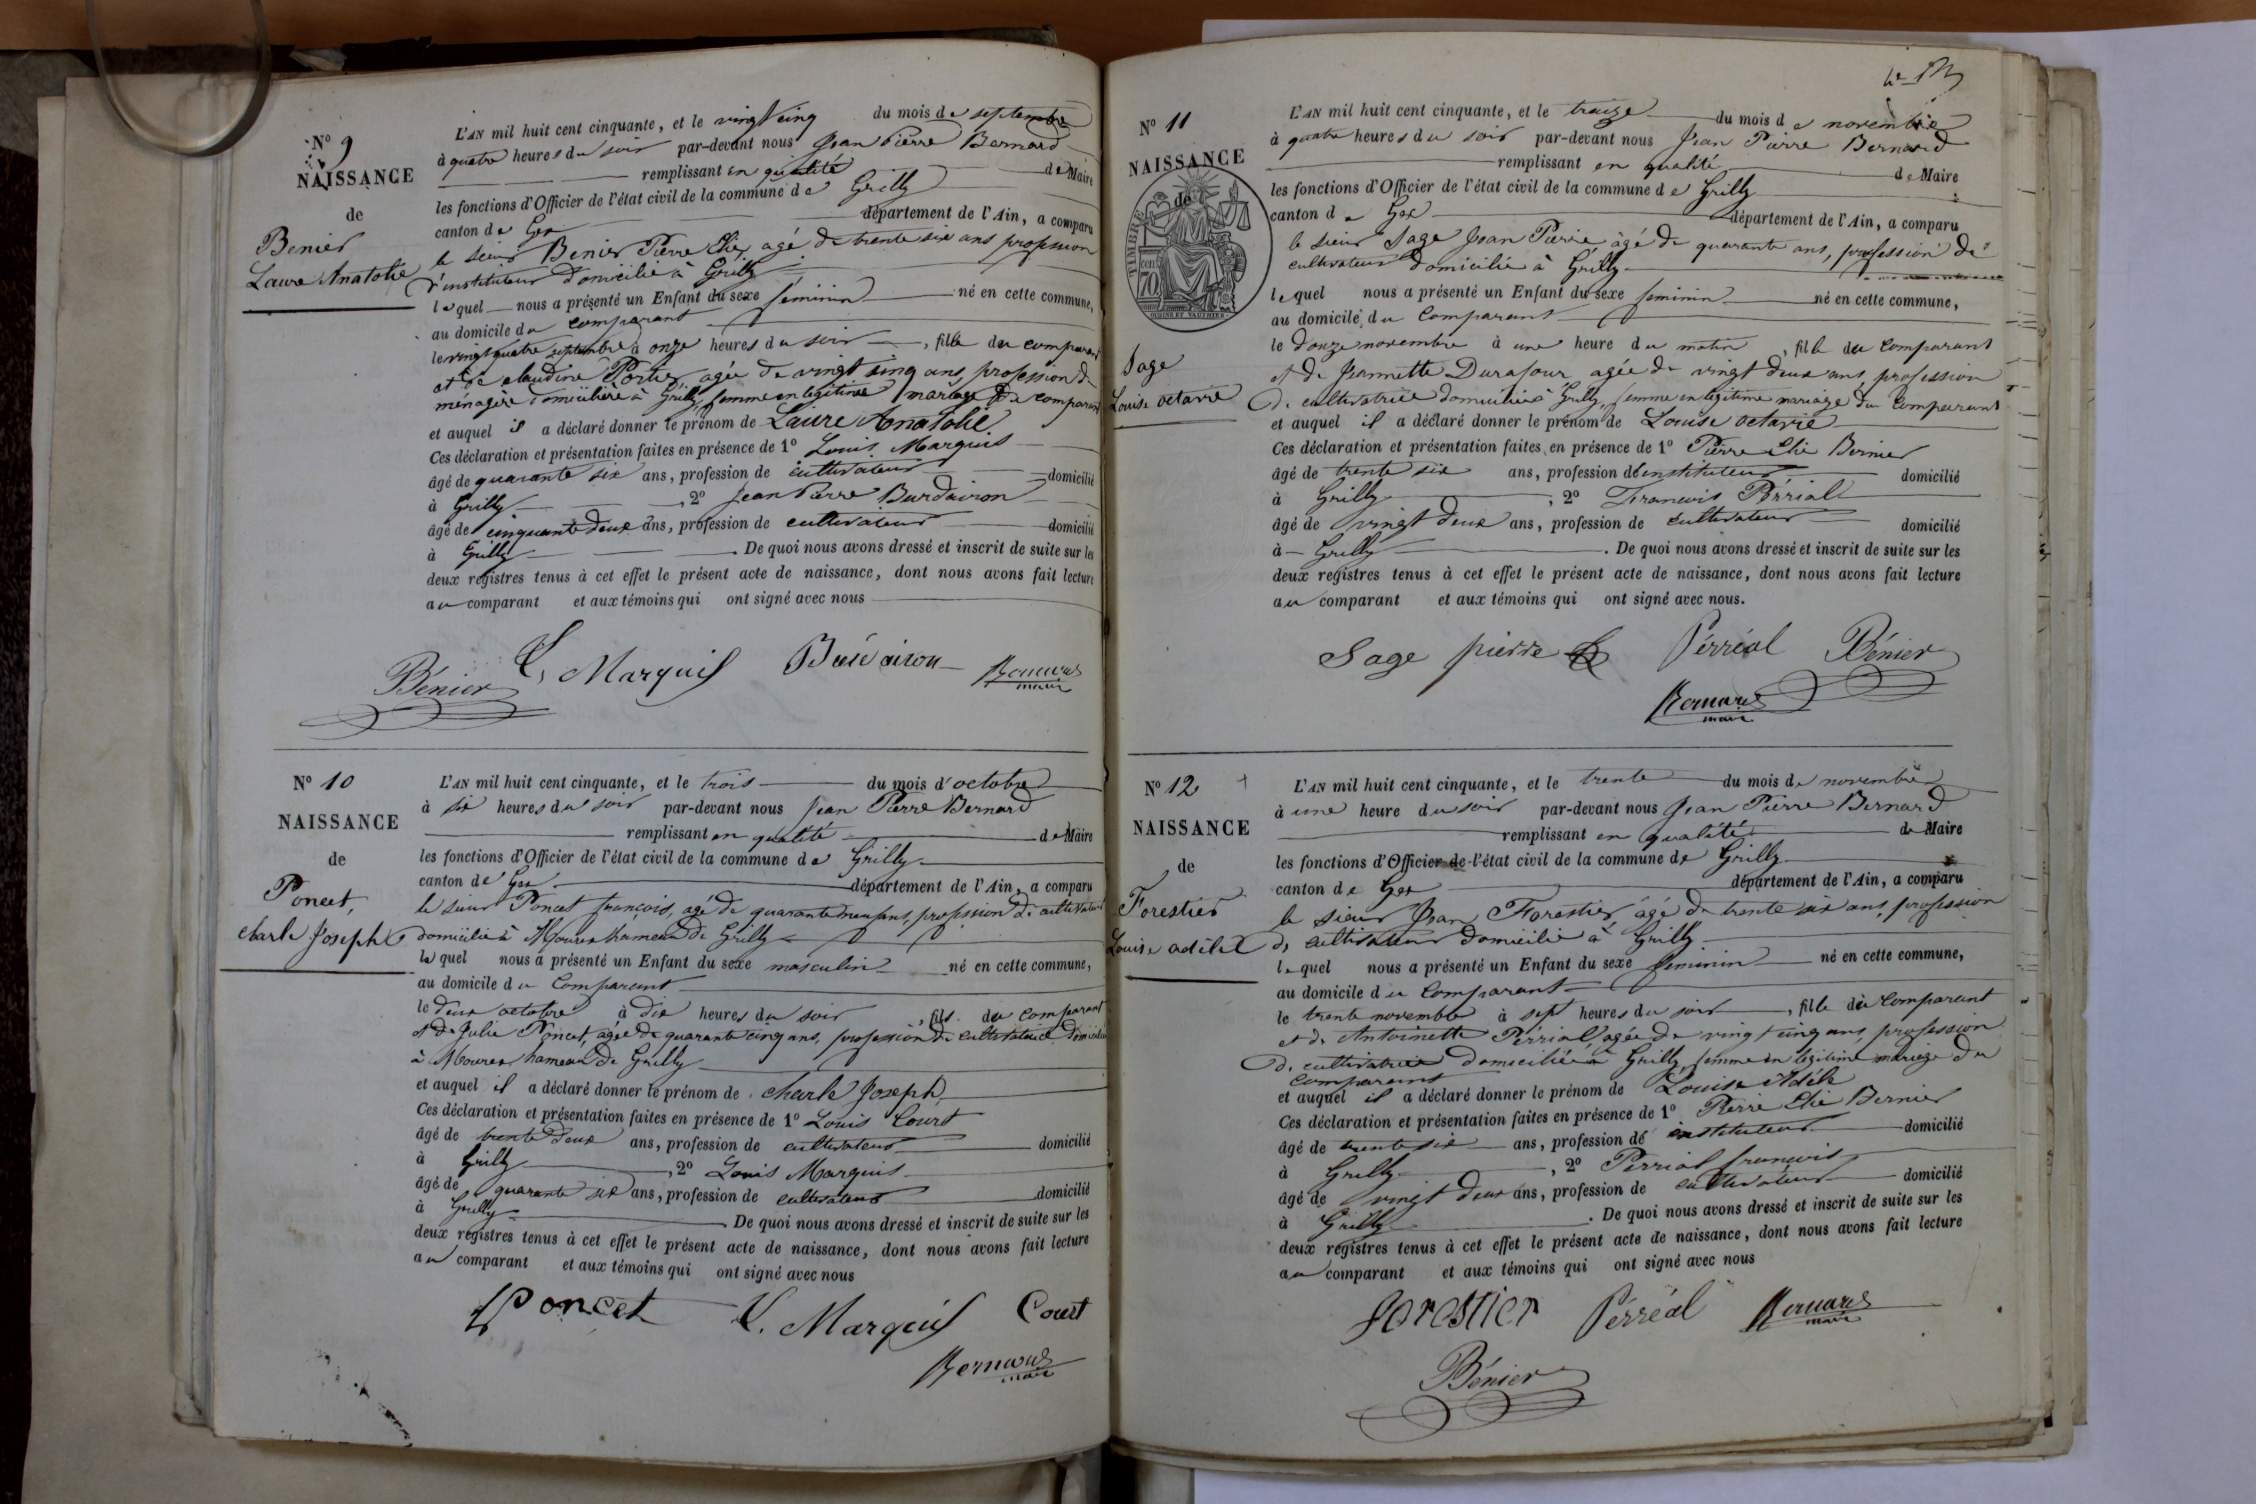 N° 9
NAISSANCE
de
Benier
Laure Anatolie
L'AN mil huit cent cinquante, et le vingt cinq du mois de septembre
à quatre heures du soir par-devant nous Jean Pierre Bernard
remplissant en qualité de Maire
les fonctions d'Officier de l'état civil de la commune de Grilly
canton de Gex département de l'Ain, a comparu
le sieur Benier Pierre Elie, agé de trente six ans profession
d'instituteur domicilié à Grilly
lequel nous a présenté un Enfant du sexe feminin né en cette commune,
au domicile du comparant
le vingt quatre septembre à onze heures du soir, fille du comparant
et de claudine Portier, agée de vingt cinq ans, profession de
ménagère domicilière à Grilly, femme en légitime mariage du comparant
et auquel il a déclaré donner le prénom de Laure Anatolie
Ces déclaration et présentation faites en présence de 1° Louis Marquis
âgé de quarante six ans, profession de cultivateur domicilié
à Grilly, 2° Jean Pierre Burdairon
âgé de cinquante deux ans, profession de cultivateur domicilié
à Grilly. De quoi nous avons dressé et inscrit de suite sur les
deux registres tenus à cet effet le présent acte de naissance, dont nous avons fait lecture
au comparant et aux témoins qui ont signé avec nous
Bénier L. Marquis Burdairon Bernard
maire
N° 10
NAISSANCE
de
Poncet,
charle Joseph
L'AN mil huit cent cinquante, et le trois du mois d'octobre
à six heures du soir par-devant nous Jean Pierre Bernard
remplissant en qualité de Maire
les fonctions d'Officier de l'état civil de la commune de Grilly
canton de Gex département de l'Ain, a comparu
le sieur Poncet françois, agé de quarante neuf ans, profession de cultivateur
domicilié à Mourex hameau de Grilly
lequel nous a présenté un Enfant du sexe masculin né en cette commune,
au domicile du Comparant
le deux octobre à dix heures du soir, fils du comparant
et de Julie Poncet, agée de quarante cinq ans, profession de cultivatrice domiciliée
à Mourex hameau de Grilly
et auquel il a déclaré donner le prénom de charle Joseph
Ces déclaration et présentation faites en présence de 1° Louis Court
âgé de trente deux ans, profession de cultivateur domicilié
à Grilly, 2° Louis Marquis
âgé de quarante six ans, profession de cultivateur domicilié
à Grilly. De quoi nous avons dressé et inscrit de suite sur les
deux registres tenus à cet effet le présent acte de naissance, dont nous avons fait lecture
au comparant et aux témoins qui ont signé avec nous
Poncet L. Marquis Court
Bernard
maire
N° 11
NAISSANCE
de
TIMBRE
70
Sage
Louise octavie
L'AN mil huit cent cinquante, et le treize du mois de novembre
à quatre heures du soir par-devant nous Jean Pierre Bernard
remplissant en qualité de Maire
les fonctions d'Officier de l'état civil de la commune de Grilly
canton de Gex département de l'Ain, a comparu
le sieur Sage Jean Pierre âgé de quarante ans, profession de
cultivateur domicilié à Grilly
lequel nous a présenté un Enfant du sexe feminin né en cette commune,
au domicile du Comparant
le douze novembre à une heure du matin, fille du comparant
et de Jeannette Durafour agée de vingt deux ans, profession
de cultivatrice domiciliée à Grilly, femme en legitime mariage du Comparant
et auquel il a déclaré donner le prénom de Louise octavie
Ces déclaration et présentation faites en présence de 1° Pierre Elie Bernier
âgé de trente six ans, profession d'instituteur domicilié
à Grilly, 2° Francois Périal
âgé de vingt deux ans, profession de cultivateur domicilié
à Grilly. De quoi nous avons dressé et inscrit de suite sur les
deux registres tenus à cet effet le présent acte de naissance, dont nous avons fait lecture
au comparant et aux témoins qui ont signé avec nous.
Sage pierre Pérréal Bénier
Bernard
maire
N° 12
NAISSANCE
de
Forestier
Louise adèle
L'AN mil huit cent cinquante, et le trente du mois de novembre
à une heure du soir par-devant nous Jean Pierre Bernard
remplissant en qualité de Maire
les fonctions d'Officier de l'état civil de la commune de Grilly
canton de Gex département de l'Ain, a comparu
le sieur Jean Forestier âgé de trente six ans, profession
de cultivateur domicilié à Grilly
lequel nous a présenté un Enfant du sexe feminin né en cette commune,
au domicile du Comparant
le trente novembre à sept heures du soir, fille du Comparant
et de Antoinette Périal, agée de vingt cinq ans, profession
de cultivatrice domiciliée à Grilly, femme en légitime mariage du
comparant
et auquel il a déclaré donner le prénom de Louise Adèle
Ces déclaration et présentation faites en présence de 1° Pierre Elie Bernier
âgé de trente six ans, profession de instituteur domicilié
à Grilly, 2° Perrial francois
âgé de vingt deux ans, profession de cultivateur domicilié
à Grilly. De quoi nous avons dressé et inscrit de suite sur les
deux registres tenus à cet effet le présent acte de naissance, dont nous avons fait lecture
au comparant et aux témoins qui ont signé avec nous
forestier Pérréal Bernard
maire
Bénier